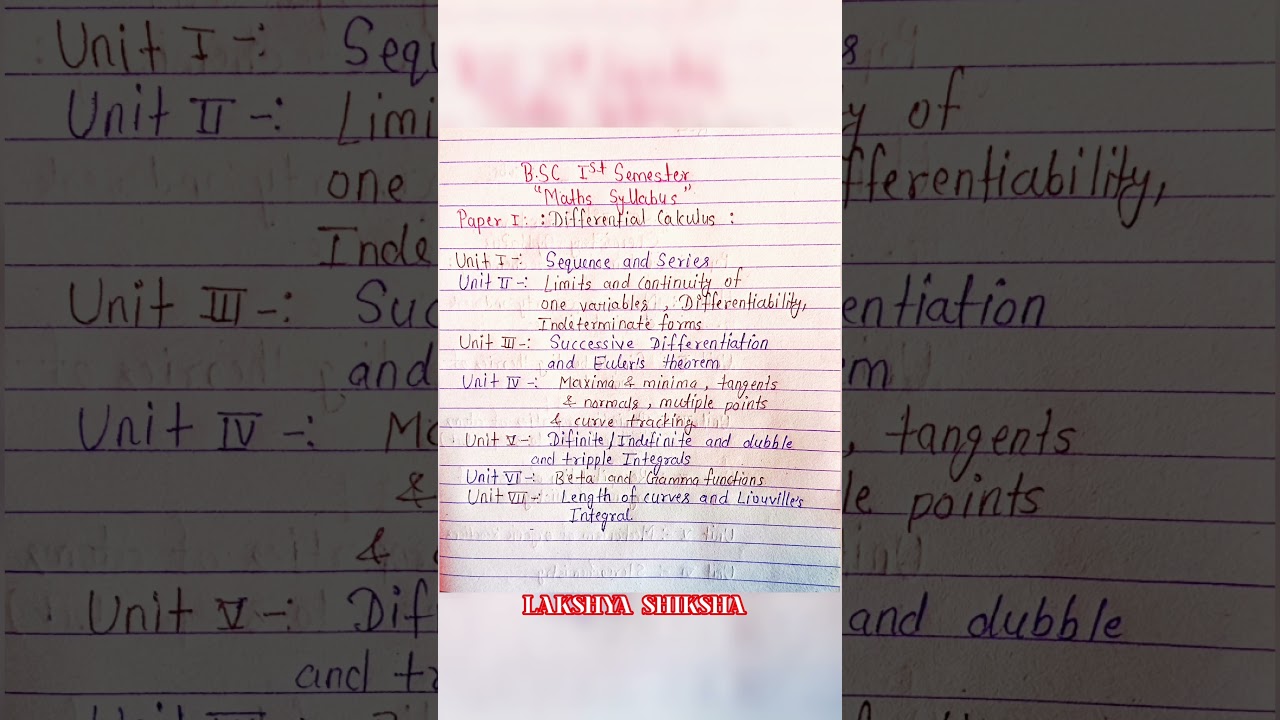 B.SC Ist Semester
"Maths Syllabus"
Paper I: : Differential Calculus :
Unit I -: Sequence and Series
Unit II -: Limits and Continuity of
one variables , Differentiability,
Indeterminate forms
Unit III -: Successive Differentiation
and Euler's theorem
Unit IV -: Maxima & minima , tangents
& normals , mutiple points
& curve tracking
Unit V -: Difinite/Indefinite and dubble
and tripple Integrals
Unit VI -: Beta and Gamma functions
Unit VII -: Length of curves and Liouville's
Integral
LAKSHYA SHIKSHA